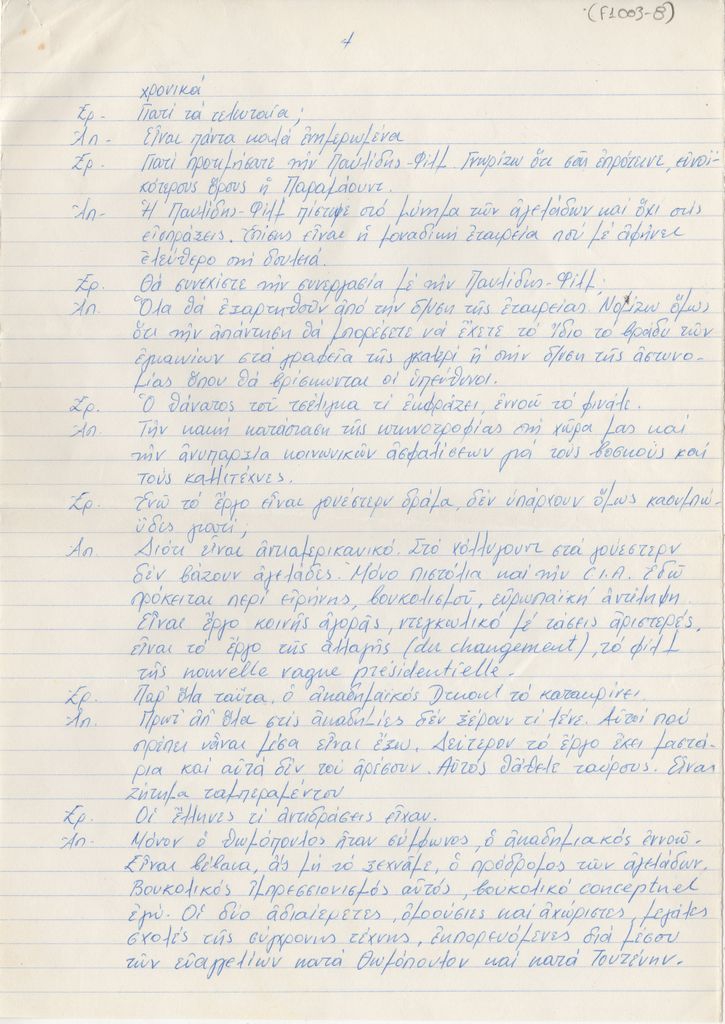 (F1003-8)
4
χρονικά
Ερ. - Γιατί τά τελευταία;
Ἀπ - Εἶναι πάντα καλά ἐνημερωμένα
Ερ. Γιατί προτιμήσατε τήν Παυλίδης-Φίλμ. Γνωρίζω ὅτι σᾶς ἐπρότεινε εὐνοϊ-
κότερους ὅρους ἡ Παραμάουντ.
Ἀπ - Ἡ Παυλίδης-Φίλμ πίστεψε στό μήνυμα τῶν ἀγελάδων καί ὄχι στίς
εἰσπράξεις. Ἐπίσης εἶναι ἡ μοναδική ἑταιρεία πού μέ ἀφήνει
ἐλεύθερο στή δουλειά.
Ερ. Θά συνεχίσετε τήν συνεργασία μέ τήν Παυλίδης-Φίλμ;
Ἀπ. Ὅλα θά ἐξαρτηθοῦν ἀπό τήν δ/νση τῆς ἑταιρείας. Νομίζω ὅμως
ὅτι τήν ἀπάντηση θά μπορέσετε νά ἔχετε τό ἴδιο το βράδυ τῶν
ἐγκαινίων στά γραφεῖα τῆς γκαλερί ἤ στήν δ/νση τῆς ἀστυνο-
μίας ὅπου θά βρίσκωνται οἱ ὑπεύθυνοι.
Ερ. Ὁ θάνατος τοῦ τσέλιγκα τί ἐκφράζει, ἐννοῶ τό φινάλε.
Ἀπ. Τήν κακή κατάσταση τῆς κτηνοτροφίας στή χώρα μας καί
τήν ἀνυπαρξία κοινωνικῶν ἀσφαλίσεων γιά τούς βοσκούς καί
τούς καλλιτέχνες.
Ερ. Ἐνῶ τό ἔργο εἶναι γουέστερν δράμα, δέν ὑπάρχουν ὅμως καουμπό-
ϋδες γιατί;
Ἀπ. Διότι εἶναι ἀντιαμερικανικό. Στό χόλλυγουντ στά γουέστερν
δέν βάζουν ἀγελάδες. Μόνο πιστόλια καί τήν C.I.A. Ἐδῶ
πρόκειται περί εἰρήνης, βουκολισμοῦ, εὐρωπαϊκή ἀντίληψη.
Εἶναι ἔργο κοινῆς ἀγορᾶς, ντεγκωλικό μέ τάσεις ἀριστερές,
εἶναι τό ἔργο τῆς ἀλλαγῆς (du changement), τό φίλμ
τῆς nouvelle vague présidentielle.
Ερ. Παρ' ὅλα ταῦτα, ὁ ἀκαδημαϊκός τό κατακρίνει.
Ἀπ. Πρῶτ' ἀπ' ὅλα στίς ἀκαδημίες δέν ξέρουν τί λένε. Αὐτοί πού
πρέπει νἆναι μέσα εἶναι ἔξω. Δεύτερον τό ἔργο ἔχει μαστά-
ρια καί αὐτά δέν τοῦ ἀρέσουν. Αὐτός θἄθελε ταύρους. Εἶναι
ζήτημα ταμπεραμέντου
Ερ. Οἱ ἕλληνες τί ἀντιδράσεις εἶχαν.
Ἀπ. Μόνον ὁ Θωμόπουλος ἦταν σύμφωνος, ὁ ἀκαδημιακός ἐννοῶ.
Εἶναι βέβαια, ἄς μή τό ξεχνᾶμε, ὁ πρόδρομος τῶν ἀγελάδων.
Βουκολικός ἰμπρεσσιονισμός αὐτός, βουκολικό conceptuel
ἐγώ. Οἱ δύο ἀδιαίρετες, ὁμοούσιες καί ἀχώριστες, μεγάλες
σχολές τῆς σύγχρονης τέχνης, ἐκπορευόμενες διά μέσου
τῶν εὐαγγελίων κατά Θωμόπουλον καί κατά